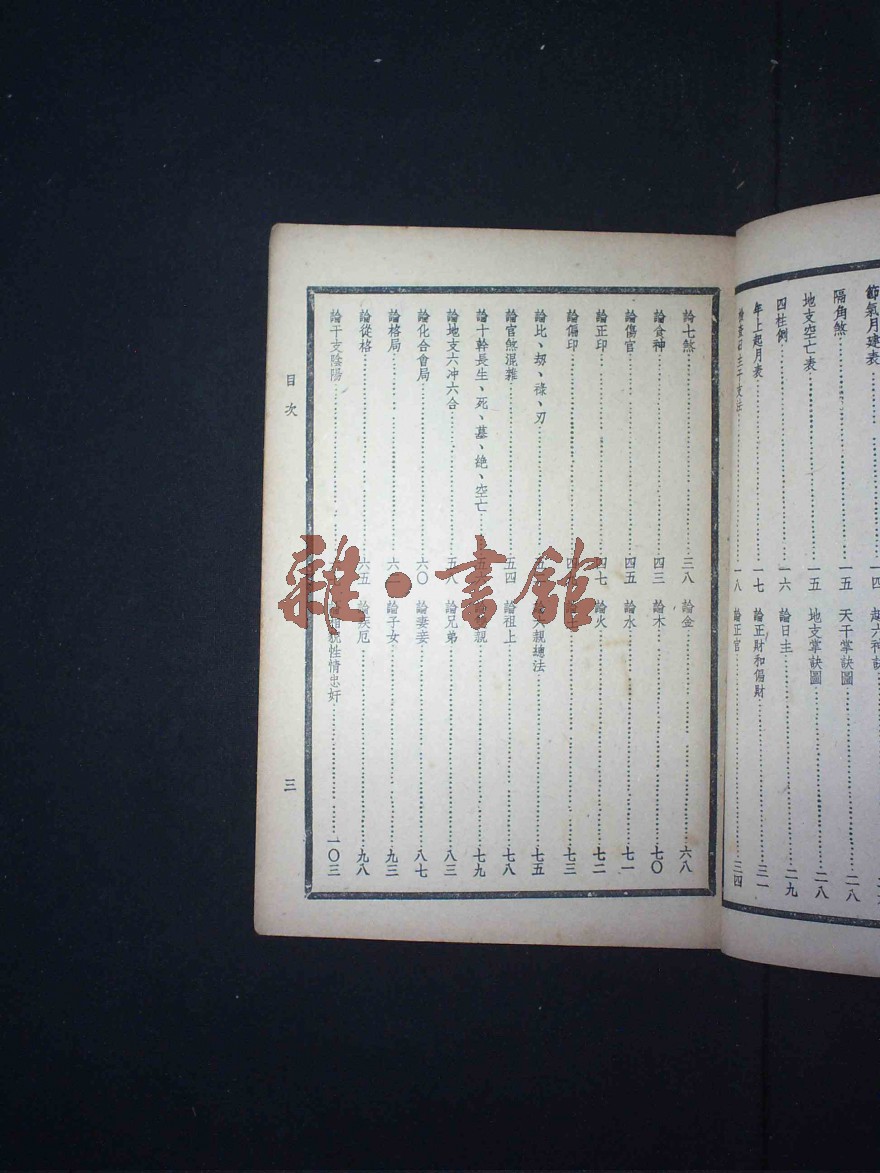 節氣月建表……一四
隔角煞……一五 天干掌訣圖……二八
地支空亡表……一五 地支掌訣圖……二八
四柱例……一六 論日主……二九
年上起月表……一七 論正財和偏財……三一
日主干支法……一八 論正官……三四
論七煞……三八 論金……六八
論食神……四三 論木……七〇
論傷官……四五 論水……七一
論正印……四七 論火……七二
論偏印……七三
論比、刼、祿、刃……六親總法……七五
論官煞混雜……五四 論祖上……七八
論十幹長生、死、墓、絶、空亡……親……七九
論地支六冲六合……五八 論兄弟……八三
論化合會局……六〇 論妻妾……八七
論格局……論子女……九三
論從格……六五 論疾厄……九八
論干支陰陽……性情忠奸……一〇三
目次
三
雜·書館